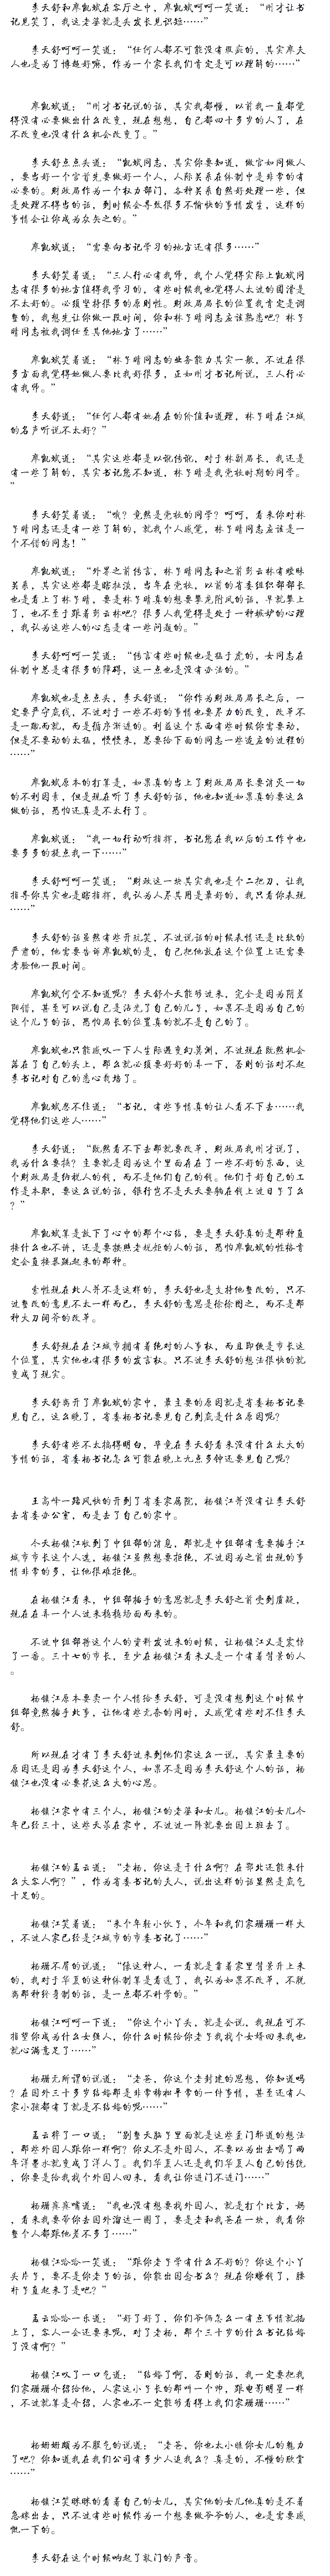 李天舒和廖凯斌在客厅之中，廖凯斌呵呵一笑道：“刚才让书
记见笑了，我这老婆就是头发长见识短……”
李天舒呵呵一笑道：“任何人都不可能没有瑕疵的，其实廖夫
人也是为了博超好嘛，作为一个家长我们肯定是可以理解的……”
廖凯斌道：“刚才书记说的话，其实我都懂，以前我一直都觉
得没有必要做出什么改变，现在想想，自己都四十多岁的人了，在
不改变也没有什么机会改变了。”
李天舒点点头道：“凯斌同志，其实你要知道，做官如同做人
，要当好一个官首先要做好一个人，人际关系在体制中是非常的有
必要的。财政局作为一个权力部门，各种关系自然好处理一些，但
是处理不得当的话，到时候会导致很多不愉快的事情发生，这样的
事情会让你成为众矢之的。”
廖凯斌道：“需要向书记学习的地方还有很多……”
李天舒笑着道：“三人行必有我师，我个人觉得实际上凯斌同
志有很多的地方值得我学习的，有些时候我也觉得人太过的圆滑是
不太好的。必须坚持很多的原则性。财政局局长的位置我肯定是调
整的，我想先让你做一段时间，你和林夕晴同志应该熟悉吧？林夕
晴同志被我调任至其他地方了……”
廖凯斌笑着道：“林夕晴同志的业务能力其实一般，不过在很
多方面我觉得她做人要比我好很多，正如刚才书记所说，三人行必
有我师。”
李天舒道：“任何人都有她存在的价值和道理，林夕晴在江城
的名声听说不太好？”
廖凯斌道：“其实这些都是以讹传讹，对于林副局长，我还是
有一些了解的，其实书记您不知道，林夕晴是我党校时期的同学。
”
李天舒笑着道：“哦？竟然是党校的同学？呵呵，看来你对林
夕晴同志还是有一些了解的，就我个人感觉，林夕晴同志应该是一
个不错的同志！”
廖凯斌道：“外界之前传言，林夕晴同志和之前彭云林有暧昧
关系，其实这些都是瞎扯淡，当年在党校，以前的省委组织部部长
也是看上了林夕晴，要是林夕晴真的想要攀龙附凤的话，早就攀上
了，也不至于跟着彭云林吧？很多人我觉得是处于一种嫉妒的心理
，我认为这些人的心态是有一些问题的。”
李天舒呵呵一笑道：“传言有些时候也是猛于虎的，女同志在
体制中总是有很多的障碍，这一点也是没有办法的。”
廖凯斌也是点点头，李天舒道：“你作为财政局局长之后，一
定要严守底线，不过对于一些不好的事情也要尽力的改变，改革不
是一蹴而就，而是循序渐进的。利益这个东西有些时候你需要动，
但是不要动的太猛，慢慢来，总要给下面的同志一些适应的过程的
……”
廖凯斌原本的打算是，如果真的当上了财政局局长要消灭一切
的不利因素，但是现在听了李天舒的话，他也知道如果真的要这么
做的话，恐怕还真是不太行了。
廖凯斌道：“我一切行动听指挥，书记您在我以后的工作中也
要多多的提点我一下……”
李天舒呵呵一笑道：“财政这一块其实我也是个二把刀，让我
指导你其实也是瞎指挥，我认为人尽其用是最好的，我只看你表现
……”
李天舒的话虽然有些开玩笑，不过说话的时候表情还是比较的
严肃的，他需要告诉廖凯斌的是，自己把他放在这个位置上还需要
考验他一段时间。
廖凯斌何尝不知道呢？李天舒今天能够过来，完全是因为阴差
阳错，甚至可以说自己是沾光了自己的儿子，如果不是因为自己的
这个儿子的话，恐怕局长的位置真的就不是自己的了。
廖凯斌也只能感叹一下人生际遇变幻莫测，不过现在既然机会
落在了自己的头上，那么就必须要好好的弄一下，否则的话对不起
李书记对自己的悉心栽培了。
廖凯斌忍不住道：“书记，有些事情真的让人看不下去……我
觉得他们这些人……”
李天舒道：“既然看不下去那就要改革，财政局我刚才说了，
我为什么要搞？主要就是因为这个里面存在了一些不好的东西，这
个财政局是纳税人的钱，而不是他们自己的钱。他们干好自己的工
作是本职，要这么说的话，银行岂不是天天要躺在钱上过日子了么
？”
廖凯斌算是放下了心中的那个心结，要是李天舒真的是那种直
接什么也不讲，还是要按照老规矩的人的话，恐怕廖凯斌的性格肯
定会直接暴跳起来的那种。
索性现在此人并不是这样的，李天舒也是支持他整改的，只不
过整改的意见不太一样而已，李天舒的意思是徐徐图之，而不是那
种大刀阔斧的改革。
李天舒现在在江城市拥有着绝对的人事权，而且即使是市长这
个位置，其实他也有很多的发言权。只不过李天舒的想法很快的就
变成了现实。
李天舒离开了廖凯斌的家中，最主要的原因就是省委杨书记要
见自己，这么晚了，省委杨书记要见自己到底是什么原因呢？
李天舒有些不太搞得明白，毕竟在李天舒看来没有什么太大的
事情的话，省委杨书记怎么可能在晚上九点多钟还要见自己呢？
王高峰一路风快的开到了省委家属院，杨镇江并没有让李天舒
去省委办公室，而是去了自己的家中。
今天杨镇江收到了中组部的消息，那就是中组部有意要插手江
城市市长这个人选，杨镇江虽然想要拒绝，不过因为之前出现的事
情非常的多，让他很难拒绝。
在杨镇江看来，中组部插手的意思就是李天舒之前受到质疑，
现在在弄一个人过来撑撑场面而来的。
不过中组部将这个人的资料发过来的时候，让杨镇江又是震惊
了一番。三十七的市长，至少在杨镇江看来又是一个有着背景的人
。
杨镇江原本要卖一个人情给李天舒，可是没有想到这个时候中
组部竟然插手此事，让他有些无奈的同时，又感觉有些对不住李天
舒。
所以现在才有了李天舒过来到他们家这么一说，其实最主要的
原因还是因为李天舒这个人，如果不是因为李天舒这个人的话，杨
镇江也没有必要花这么大的心思。
杨镇江家中有三个人，杨镇江的老婆和女儿。杨镇江的女儿今
年已经三十，这些天呆在家中，不过过一阵就要出国上班去了。
杨镇江的孟云道：“老杨，你这是干什么啊？在鄂北还能来什
么大客人啊？”，作为省委书记的夫人，说出这样的话显然是底气
十足的。
杨镇江笑着道：“来个年轻小伙子，今年和我们家珊珊一样大
，不过人家已经是江城市的市委书记了……”
杨珊不屑的说道：“像这种人，一看就是靠着家里背景升上来
的，我对于华夏的这种体制算是看透了，我认为如果不改革，不脱
离那种终身制的话，是一点都不科学的。”
杨镇江呵呵一下道：“你这个小丫头，就是会说，我现在可不
指望你成为什么女强人，你什么时候给你老子我找个女婿回来我也
就心满意足了……”
杨珊无所谓的说道：“老爸，你这个老封建的思想，你知道吗
？在国外三十多岁结婚那是非常稀松平常的一件事情，甚至还有人
家小孩都有了就是不结婚的呢……”
孟云啐了一口道：“别整天脑子里面就是这些歪门邪道的想法
，那些外国人跟你一样啊？你又不是外国人，不要以为出去喝了两
年洋墨水就变成了洋人了。我们华夏人还是我们华夏人自己的传统
，你要是给我找个外国人回来，看我让你进门不进门……”
杨珊弯弯嘴道：“我也没有想要找外国人，就是打个比方，妈
，看来我要带你去国外溜达一圈了，要是老和我爸在一块，我看你
整个人都跟他差不多了……”
杨镇江哈哈一笑道：“跟你老子学有什么不好的？你这个小丫
头片子，要不是你老子的话，你能出国念书么？现在你赚钱了，腰
杆子直起来了是吧？”
孟云哈哈一乐道：“好了好了，你们爷俩怎么一有点事情就掐
上了，客人一会还要来呢，对了老杨，那个三十岁的什么书记结婚
了没有啊？”
杨镇江叹了一口气道：“结婚了啊，否则的话，我一定要把我
们家珊珊介绍给他，人家这小子长的那叫一个帅，跟电影明星一样
，不过就算是介绍，人家也不一定能够看得上我们家珊珊……”
杨姗姗颇为不服气的说道：“老爸，你也太小瞧你女儿的魅力
了吧？你知道我在我们公司有多少人追我么？真是的，不懂的欣赏
……”
杨镇江笑眯眯的看着自己的女儿，其实他的女儿他真的是不着
急嫁出去，只不过有些时候作为一个想要做爷爷的人，也是需要感
慨一下的。
李天舒在这个时候响起了敲门的声音。